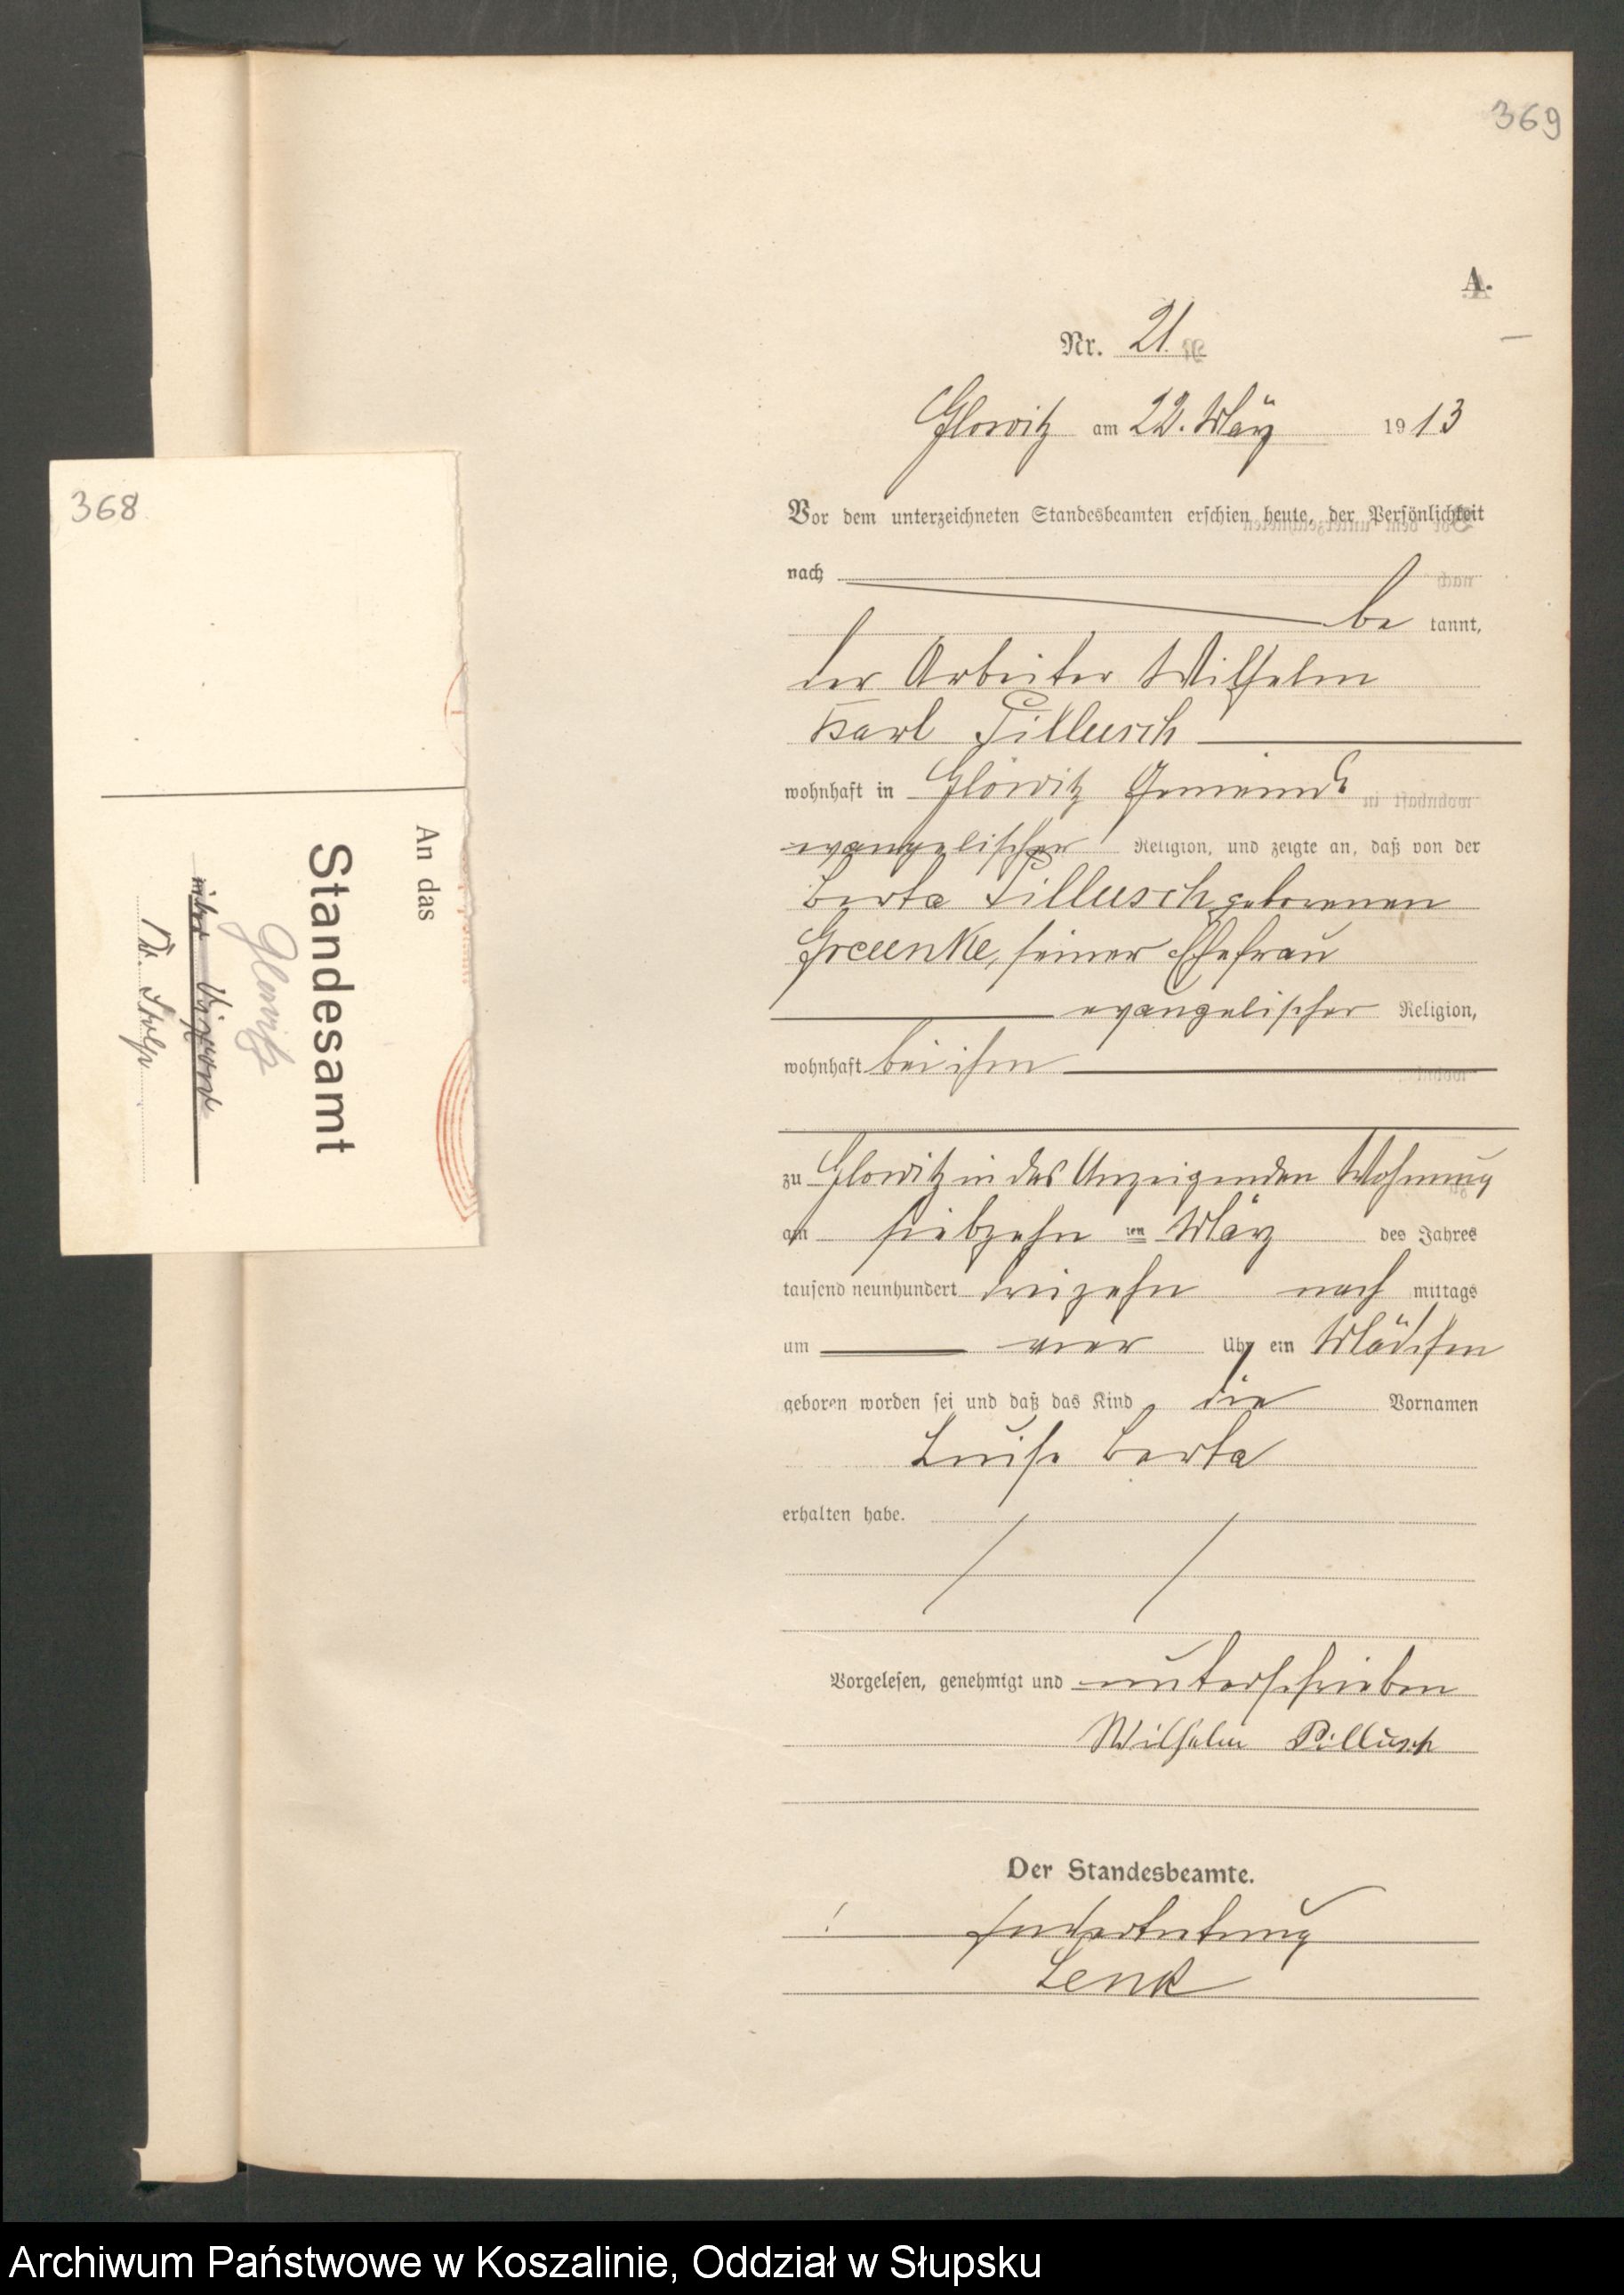 369
A.
Nr. 21.
Glowitz am 22. März 1913
Vor dem unterzeichneten Standesbeamten erschien heute, der Persönlichkeit
nach
be kannt,
der Arbeiter Wilhelm
Karl Pillusch
wohnhaft in Glowitz Gemeinde
evangelischer Religion, und zeigte an, daß von der
Berta Pillusch geborenen
Greunke, seiner Ehefrau
evangelischer Religion,
wohnhaft bei ihm
zu Glowitz in des Anzeigenden Wohnung
am siebzehn ten März des Jahres
tausend neunhundert dreizehn nach mittags
um vier Uhr ein Mädchen
geboren worden sei und daß das Kind die Vornamen
Luise Berta
erhalten habe.
Vorgelesen, genehmigt und unterschrieben
Wilhelm Pillusch
Der Standesbeamte.
In Vertretung
Lenk
368
An das
Standesamt
Glowitz
Kr. Stolp
Archiwum Państwowe w Koszalinie, Oddział w Słupsku